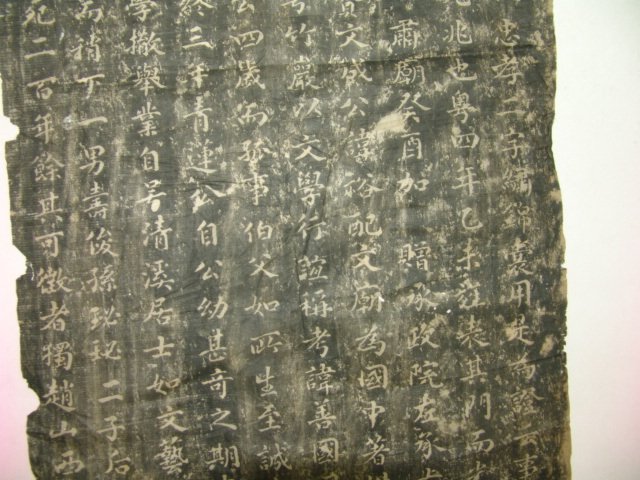 忠孝二字繡錦囊用是為證云事
兆也粤四年乙未旌表其門而
肅廟癸酉加贈承政院左承
貞文成公諱裕配文廟為國中著
号竹巖以文學行誼稱考諱善國
公四歲而孤事伯父如所生至誠
終三年青蓮公自公幼甚奇之期
學撤舉業自号清溪居士如文藝
丁一男壽俊孫珌秘二子后
死二百年餘其可徵者獨趙山西